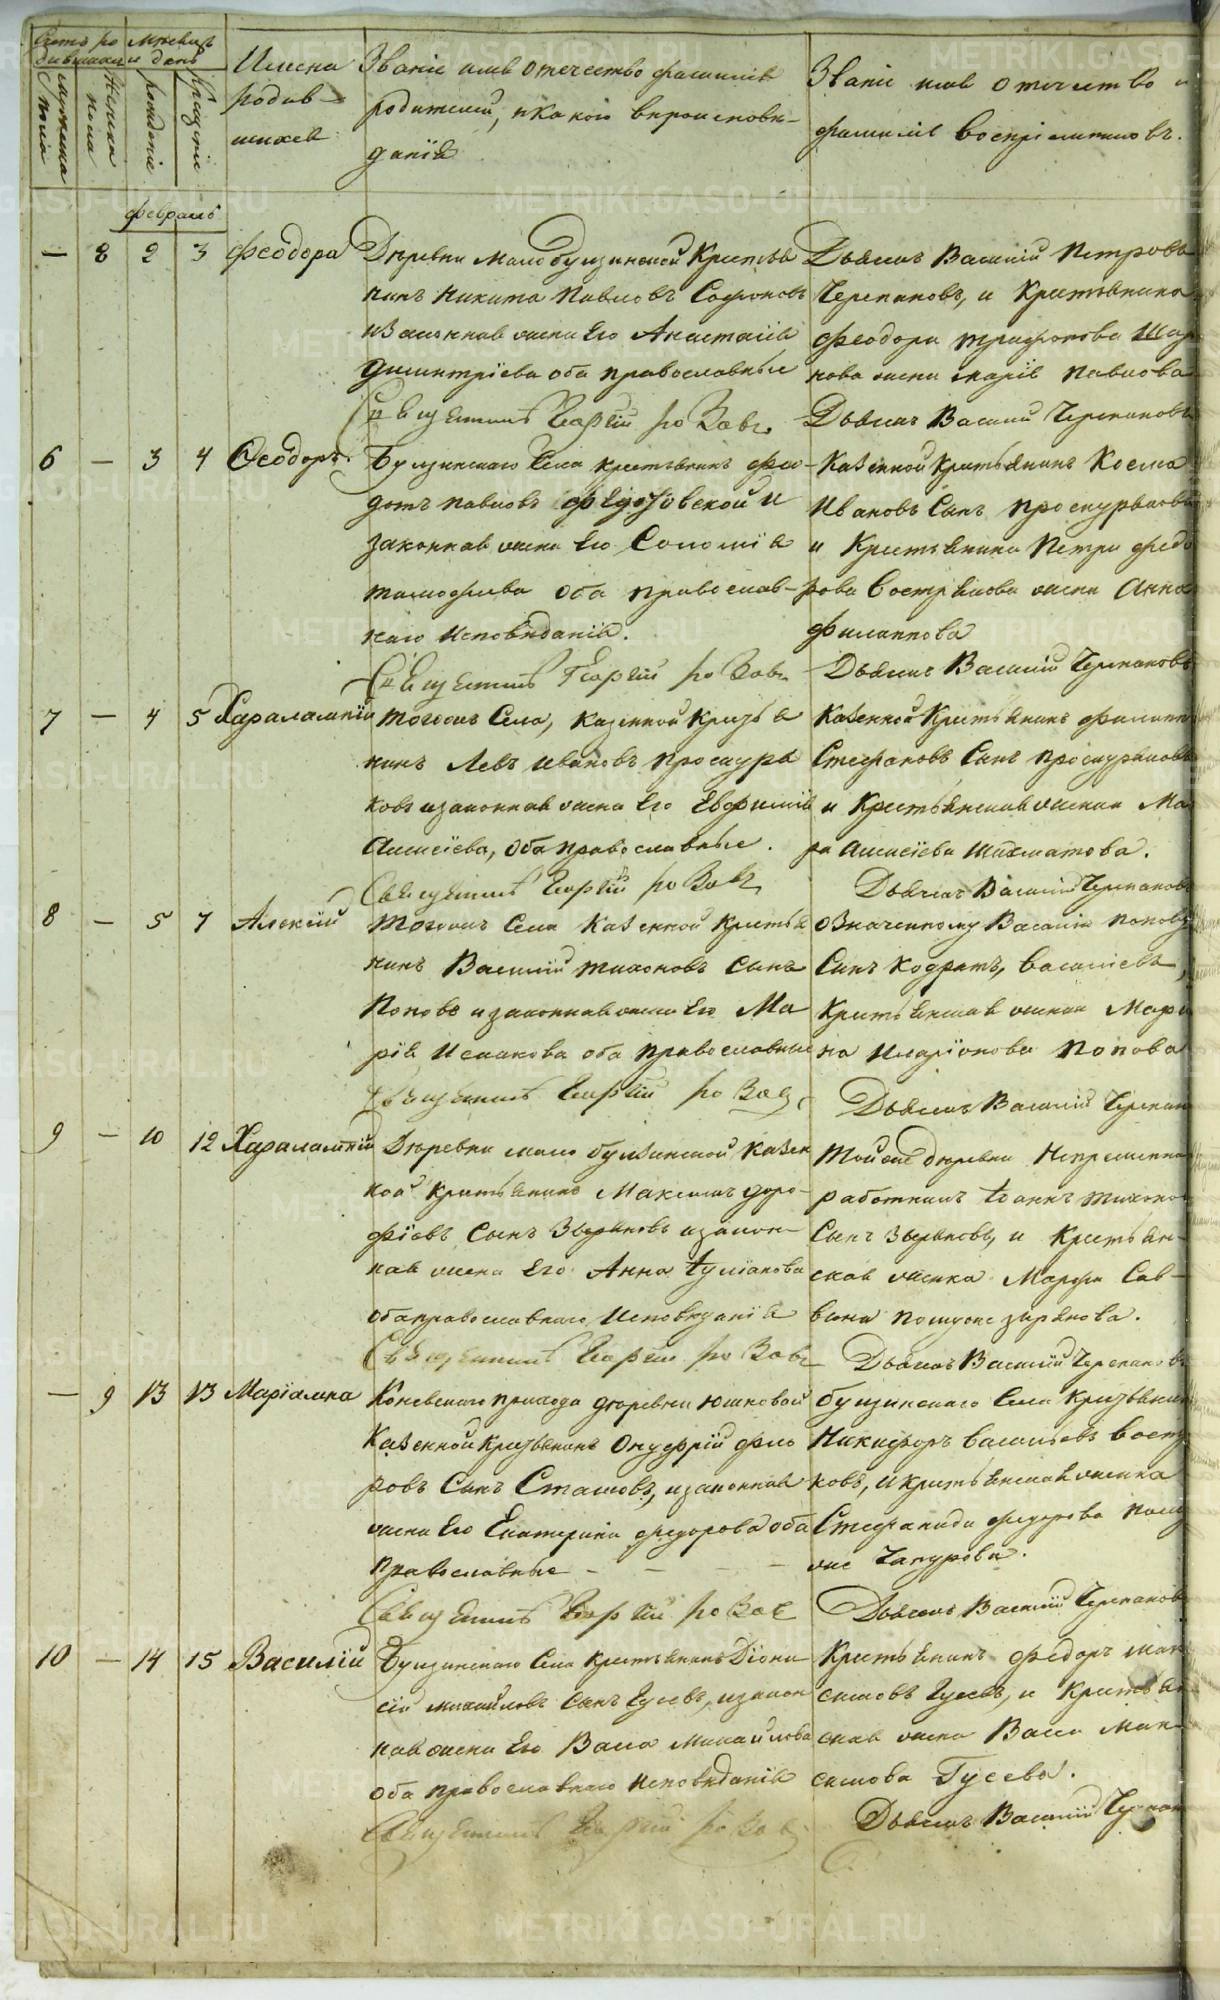 Счетъ ро
дившихся
мѣсяцъ
и день
мужеска
пола
Женска
пола
рожденіе
крещеніе
Имена
родив-
шихся
Званіе имя отечество фамилія
родителей, и какого вероисповѣ-
данія
Званіе имя отечество и
фамилія воспріемниковъ.
февраль
— 8 2 3 Феодора
Деревни Малобулзинской Крестья
нинъ Никита Павловъ Сафоновъ
и законная жена Его Анастасія
Димитріева оба православные
Священникъ Георгій
Дьячокъ Василій Петровъ
Черепановъ, и Крестьянина
Феодора Трифонова
жена Марія Павлова
Дьячокъ Василій Черепановъ
6 — 3 4 Ѳеодоръ
Булзинскаго Села крестьянинъ Фе
дотъ Павловъ и
законная жена Его Соломія
Тимофеева оба православ-
наго исповѣданія.
Священникъ Георгій
Казенной крестьянинъ Косма
Ивановъ Сынъ Проскуряковъ
и Крестьянина Петра Федо
рова Вострякова жена Анна
Филиппова
Дьячокъ Василій Черепановъ
7 — 4 5 Харалампій
Тогожъ Села, Казенной Крестья
нинъ Левъ Ивановъ Проскуря
ковъ и законная жена Его Евфимія
Алексіева, оба православные.
Священникъ Георгій
Казенной Крестьянинъ Филипп
Стефановъ Сынъ Проскуряковъ
и Крестьянская женка Ма
ра Алексіева Шихматова.
Дьячокъ Василій Черепановъ
8 — 5 7 Алексій
Тогожъ Села Казенной Крестья
нинъ Василій Тихоновъ сынъ
Поповъ и законная жена Его Ма
рія Исакова оба православные
Священникъ Георгій
означенному Василію Попову
Сынъ Кодратъ, Васильевъ,
Крестьянская женка Мари
на Иларіонова Попова
Дьячокъ Василій Черепан
9 — 10 12 Харалампій
Деревни Мало булзинской Казен
ной крестьянинъ Максимъ Доро-
фѣевъ Сынъ Зыряновъ и закон-
ная жена Его Анна
оба православнаго Исповѣданія
Священникъ Георгій
Той же деревни Непременной
работникъ Іоаннъ Тихонов
Сынъ Зыряновъ, и Крестьян-
ская женка Марфа Сав-
вина по мужѣ Зырянова.
Дьячокъ Василій Черепановъ
— 9 13 13 Маріамна
Коневскаго прихода деревни Юшковой
Казенной Крестьянинъ Онуфрій Фло
ровъ Сынъ Стахѣевъ, и законная
жена Его Екатерина Федорова оба
Православные - - - -
Священникъ Георгій
Булзинскаго Села Крестьянин
Никифоръ Васильевъ Востр
ковъ, и крестьянская женка
Стефанида Федорова по му
же Чапурова.
Дьячокъ Василій Черепановъ
10 — 14 15 Василій
Булзинскаго Села Крестьянинъ Діони
сій Михайловъ Сынъ Гусевъ, и закон
ная жена Его Васса Михайлова
оба православнаго исповѣданія
Священникъ Георгій
Крестьянинъ Федоръ Мак
симовъ Гусевъ, и Крестьян
ская жена Васса Мак
симова Гусева.
Дьячокъ Василій Черепан
METRIKI.GASO-URAL.RU